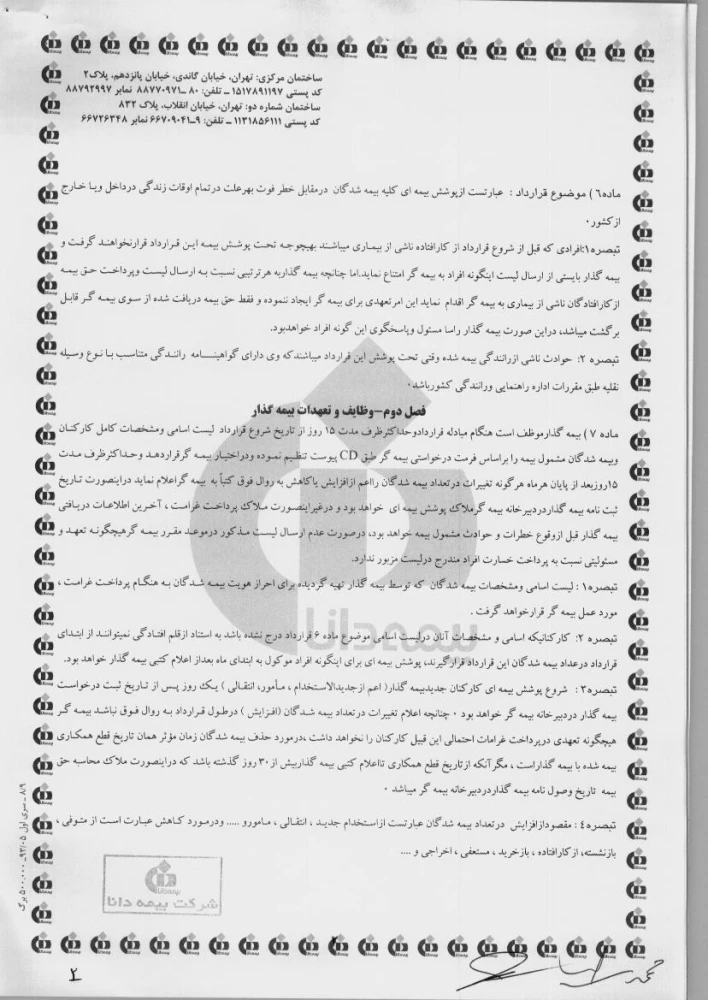 ساختمان مرکزی: تهران، خیابان گاندی، خیابان پانزدهم، پلاک ۲
کد پستی ۱۵۱۷۸۹۱۱۹۷ ـ تلفن: ۸۰ ـ۸۸۷۷۰۹۷۱ نمابر ۸۸۷۹۲۹۹۷
ساختمان شماره دو: تهران، خیابان انقلاب، پلاک ۸۳۲
کد پستی ۱۱۳۱۸۵۶۱۱۱ ـ تلفن: ۹ـ۶۶۷۰۹۰۴۱ نمابر ۶۶۷۲۶۳۴۸
ماده۶ ) موضوع قرارداد : عبارتست ازپوشش بیمه ای کلیه بیمه شدگان درمقابل خطر فوت بهرعلت درتمام اوقات زندگی درداخل ویا خارج
ازکشور۰
تبصره ۱:افرادی که قبل از شروع قرارداد از کارافتاده ناشی از بیماری میباشند بهیچوجه تحت پوشش بیمه این قرارداد قرارنخواهند گرفت و
بیمه گذار بایستی از ارسال لیست اینگونه افراد به بیمه گر امتناع نماید.اما چنانچه بیمه گذاربه هرترتیبی نسبت به ارسال لیست وپرداخت حق بیمه
ازکارافتادگان ناشی از بیماری به بیمه گر اقدام نماید این امرتعهدی برای بیمه گر ایجاد ننموده و فقط حق بیمه دریافت شده از سوی بیمه گر قابل
برگشت میباشد، دراین صورت بیمه گذار راسا مسئول وپاسخگوی این گونه افراد خواهدبود.
تبصره ۲: حوادث ناشی ازرانندگی بیمه شده وقتی تحت پوشش این قرارداد میباشندکه وی دارای گواهینامه رانندگی متناسب با نوع وسیله
نقلیه طبق مقررات اداره راهنمایی ورانندگی کشورباشد۰
فصل دوم-وظایف و تعهدات بیمه گذار
ماده ۷ ) بیمه گذارموظف است هنگام مبادله قراردادوحداکثرظرف مدت ۱۵ روز از تاریخ شروع قرارداد لیست اسامی ومشخصات کامل کارکنان
وبیمه شدگان مشمول بیمه را براساس فرمت درخواستی بیمه گر طبق CD پیوست تنظیم نموده ودراختیار بیمه گرقراردهد وحداکثرظرف مدت
۱۵روزبعد از پایان هرماه هرگونه تغییرات درتعداد بیمه شدگان رااعم ازافزایش یاکاهش به روال فوق کتباً به بیمه گراعلام نماید دراینصورت تاریخ
ثبت نامه بیمه گذاردردبیرخانه بیمه گرملاک پوشش بیمه ای خواهد بود و درغیراینصورت ملاک پرداخت غرامت ، آخرین اطلاعات دریافتی
بیمه گذار قبل ازوقوع خطرات و حوادث مشمول بیمه خواهد بود، درصورت عدم ارسال لیست مذکور درموعد مقرر بیمه گرهیچگونه تعهد و
مسئولیتی نسبت به پرداخت خسارت افراد مندرج درلیست مزبور ندارد.
تبصره۱ : لیست اسامی ومشخصات بیمه شدگان که توسط بیمه گذار تهیه گردیده برای احراز هویت بیمه شدگان به هنگام پرداخت غرامت ،
مورد عمل بیمه گر قرارخواهد گرفت .
تبصره ۲: کارکنانیکه اسامی و مشخصات آنان درلیست اسامی موضوع ماده ۶ قرارداد درج نشده باشد به استناد ازقلم افتادگی نمیتوانند از ابتدای
قرارداد درعداد بیمه شدگان این قرارداد قرارگیرند، پوشش بیمه ای برای اینگونه افراد موکول به ابتدای ماه بعداز اعلام کتبی بیمه گذار خواهد بود.
تبصره۳ : شروع پوشش بیمه ای کارکنان جدیدبیمه گذار( اعم ازجدیدالاستخدام ، مأمور، انتقالی ) یک روز پس از تاریخ ثبت درخواست
بیمه گذار دردبیرخانه بیمه گر خواهد بود ۰ چنانچه اعلام تغییرات درتعداد بیمه شدگان (افزایش ) درطول قرارداد به روال فوق نباشد بیمه گر
هیچگونه تعهدی درپرداخت غرامات احتمالی این قبیل کارکنان را نخواهد داشت ،درمورد حذف بیمه شدگان زمان مؤثر همان تاریخ قطع همکاری
بیمه شده با بیمه گذاراست ، مگرآنکه ازتاریخ قطع همکاری تااعلام کتبی بیمه گذاربیش از۳۰ روز گذشته باشد که دراینصورت ملاک محاسبه حق
بیمه تاریخ وصول نامه بیمه گذاردردبیرخانه بیمه گر میباشد ۰
تبصره ٤ : مقصودازافزایش درتعداد بیمه شدگان عبارتست ازاستخدام جدید ، انتقالی ، مامورو ..... ودرمورد کاهش عبارت است از متوفی ،
بازنشسته، ازکارافتاده ، بازخرید ، مستعفی ، اخراجی و ....
بیمه دانا
شرکت بیمه دانا
۲